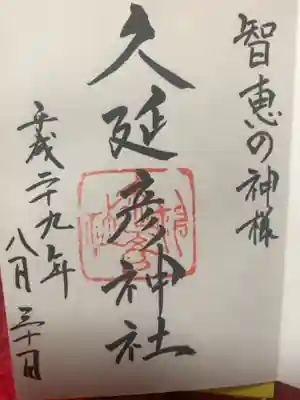 智恵の神様
久延彦神社
平成二十九年
八月三十日